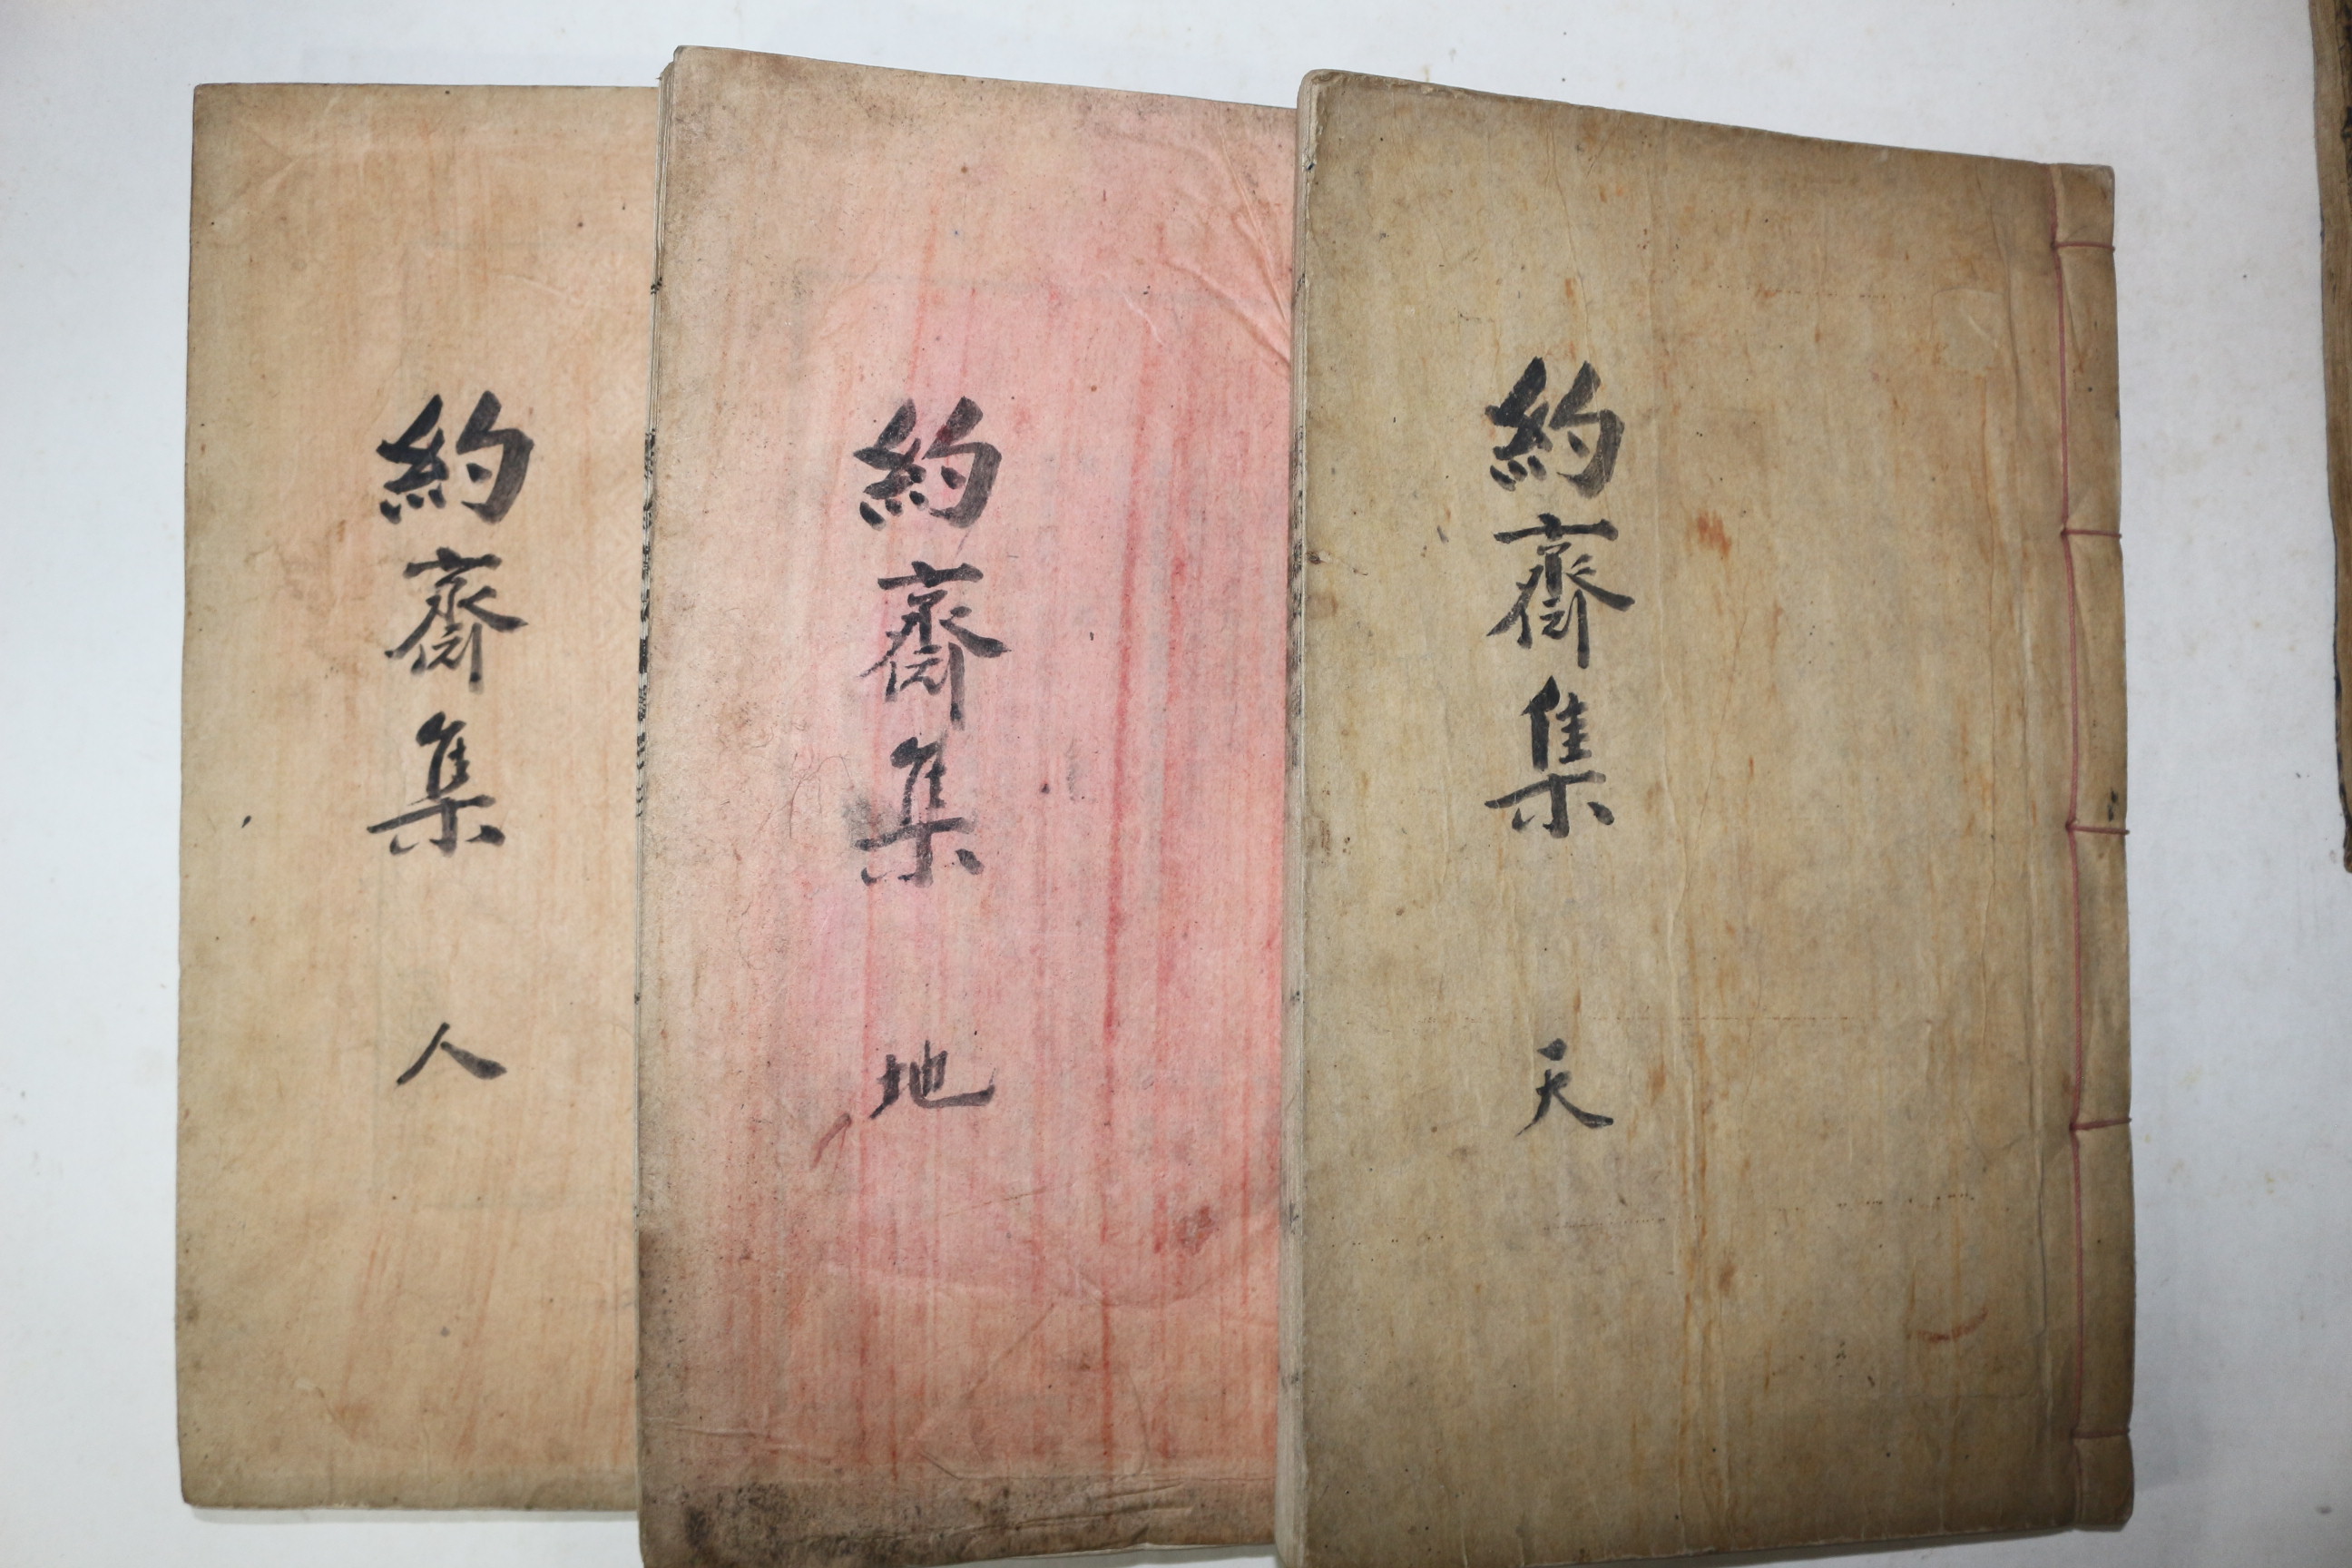 約齋集 天
約齋集 地
約齋集 人